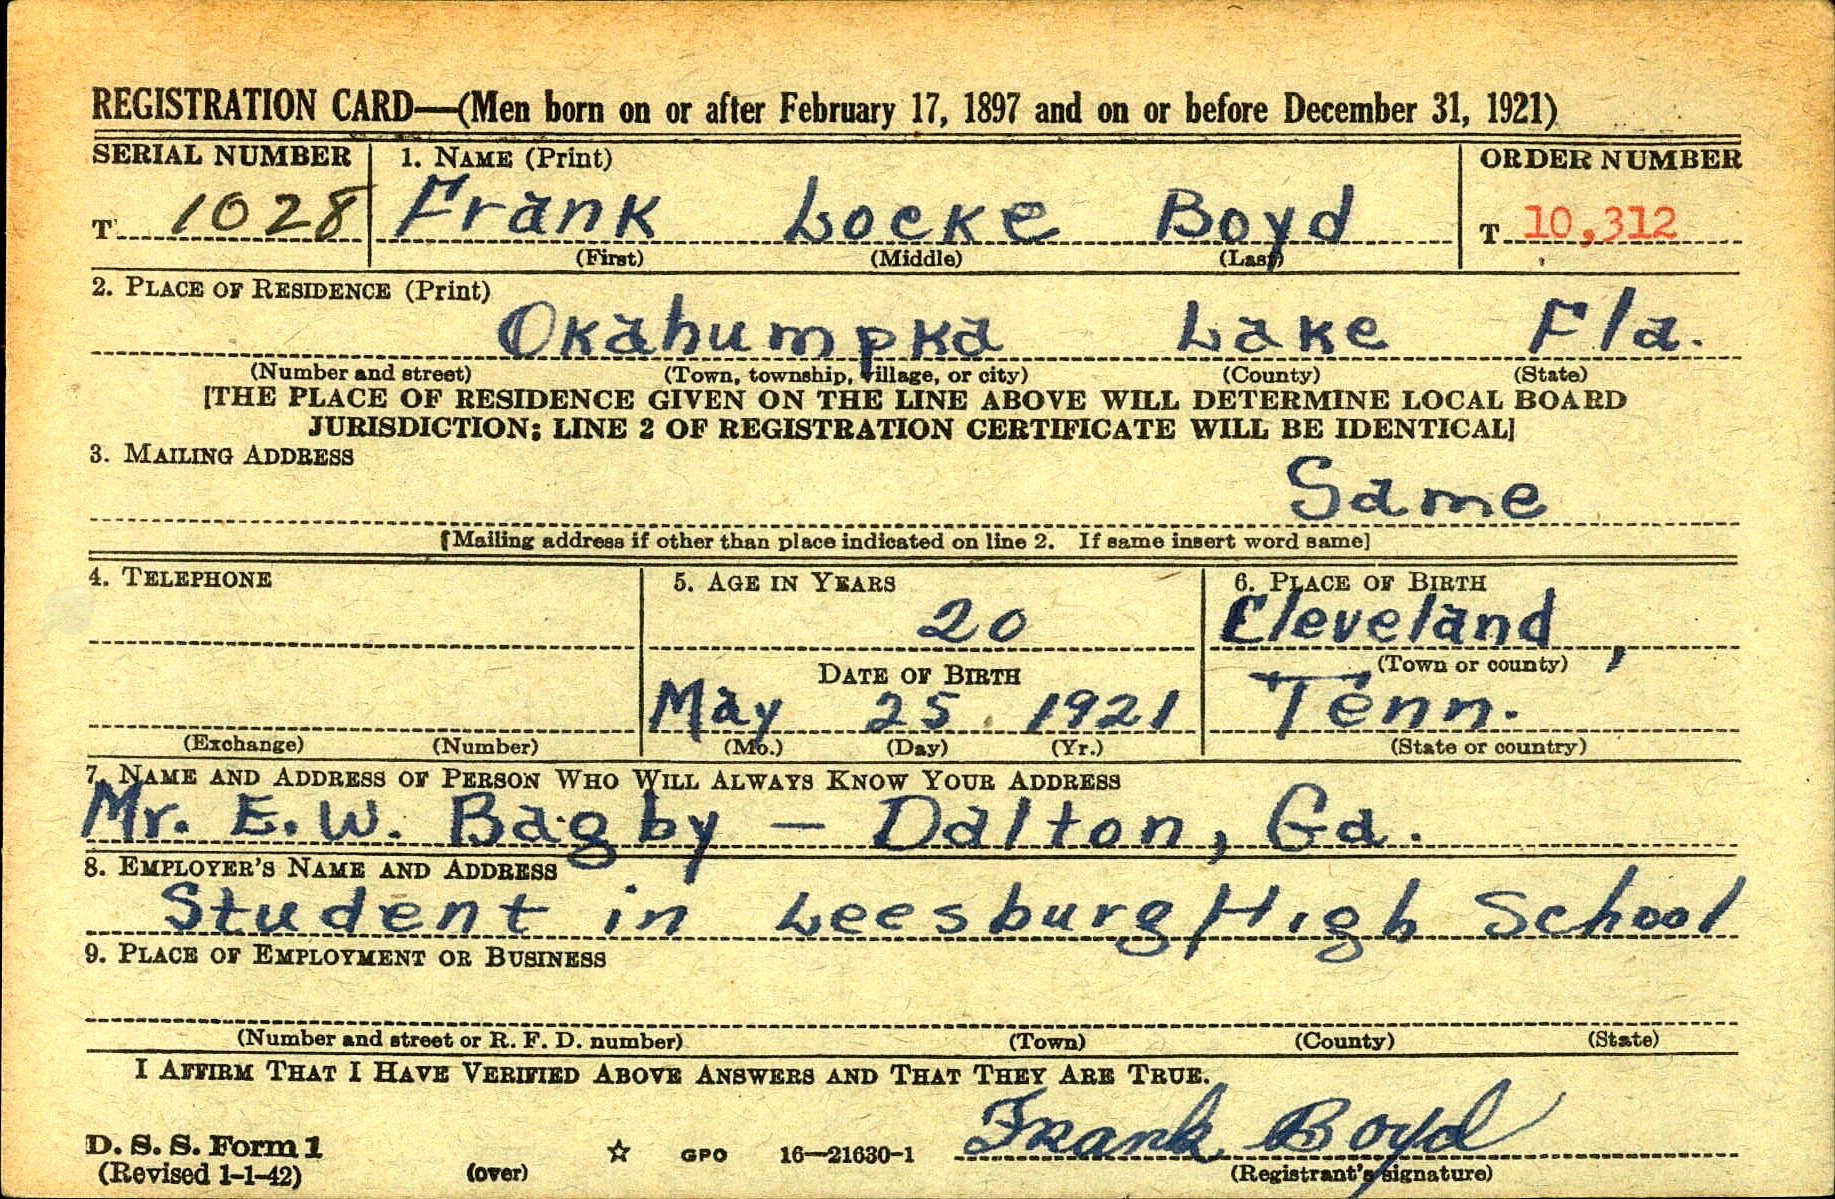 REGISTRATION CARD—(Men born on or after February 17, 1897 and on or before December 31, 1921)
SERIAL NUMBER 1. NAME (Print) ORDER NUMBER
T 1028 Frank Locke Boyd T 10,312
(First) (Middle) (Last)
2. PLACE OF RESIDENCE (Print)
Okahumpka Lake Fla.
(Number and street) (Town, township, village, or city) (County) (State)
[THE PLACE OF RESIDENCE GIVEN ON THE LINE ABOVE WILL DETERMINE LOCAL BOARD
JURISDICTION; LINE 2 OF REGISTRATION CERTIFICATE WILL BE IDENTICAL]
3. MAILING ADDRESS
Same
[Mailing address if other than place indicated on line 2. If same insert word same]
4. TELEPHONE 5. AGE IN YEARS 6. PLACE OF BIRTH
20 Cleveland,
DATE OF BIRTH (Town or county)
May 25 1921 Tenn.
(Exchange) (Number) (Mo.) (Day) (Yr.) (State or country)
7. NAME AND ADDRESS OF PERSON WHO WILL ALWAYS KNOW YOUR ADDRESS
Mr. E. W. Bagby — Dalton, Ga.
8. EMPLOYER'S NAME AND ADDRESS
Student in Leesburg High School
9. PLACE OF EMPLOYMENT OR BUSINESS
(Number and street or R. F. D. number) (Town) (County) (State)
I AFFIRM THAT I HAVE VERIFIED ABOVE ANSWERS AND THAT THEY ARE TRUE.
Frank Boyd
D. S. S. Form 1
(Revised 1-1-42) (over) ☆ GPO 16—21630-1 (Registrant's signature)